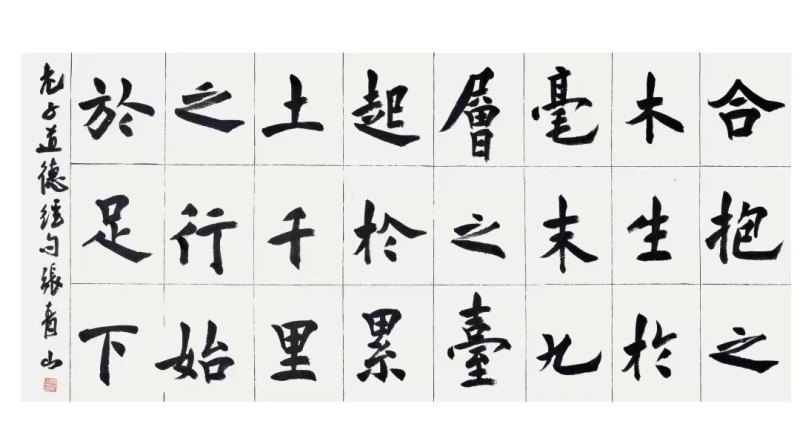 合抱之
木生於
毫末九
層之臺
起於累
土千里
之行始
於足下
老子道德經句張青山